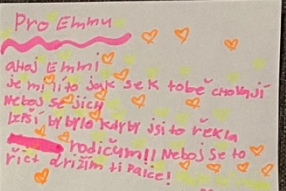 Pro Emmu
AHOJ EMMI
je mi líto jak se k tobě chovají
Neboj se jich
lepší by bylo kdyby jsi to řekla
rodičům!! Neboj se to
říct držím ti palce!